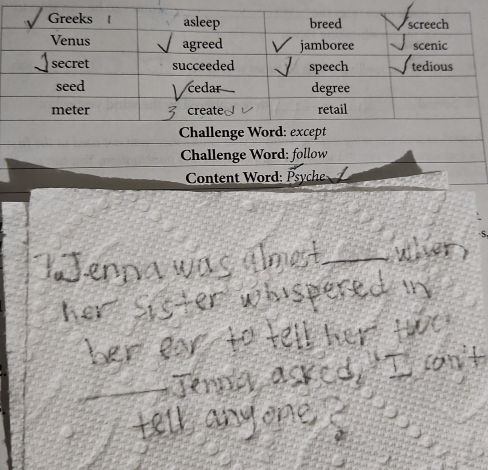 Greeks 1 asleep breed screech
Venus agreed jamboree scenic
secret succeeded speech tedious
seed cedar degree
meter 3 created retail
Challenge Word: except
Challenge Word: follow
Content Word: Psyche
Jenna was almost ____ when
her sister whispered in
her ear to tell her
____ Jenna asked, "I can't
tell anyone?